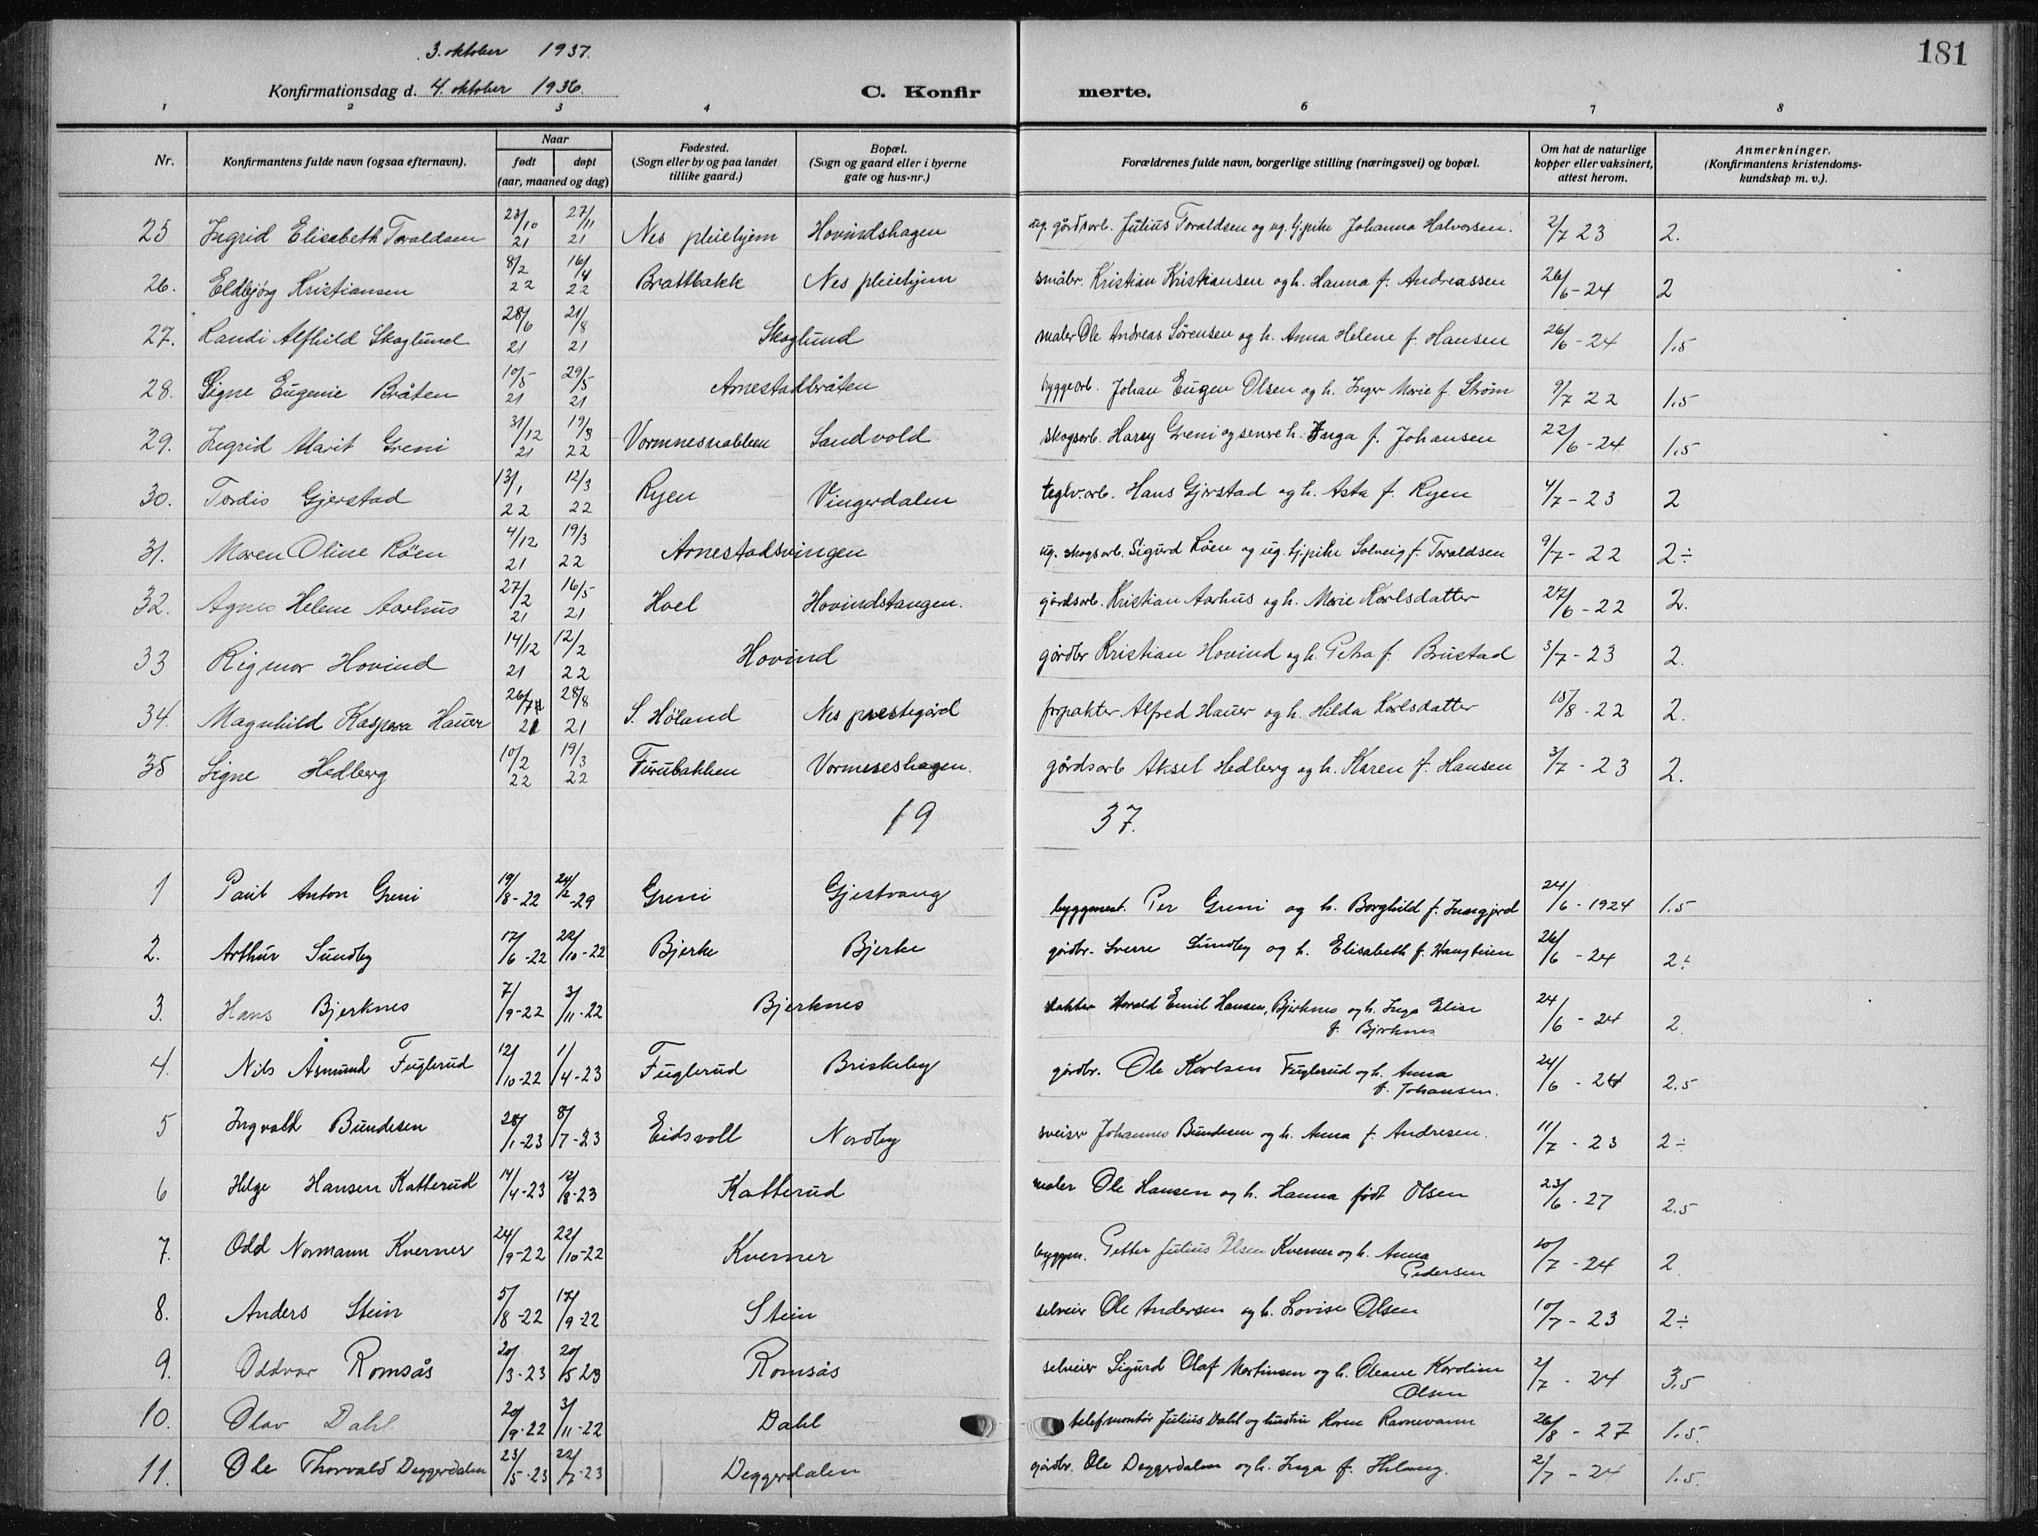 3. oktober 1937.
Konfirmationsdag d. 4. oktober 1936.
C. Konfir merte.
181
1 2 3 4 6 7 8
Nr. Konfirmantens fulde navn (ogsaa efternavn). Naar født døpt (aar, maaned og dag) Fødested. (Sogn eller by og paa landet tillike gaard.) Bopæl. (Sogn og gaard eller i byerne gate og hus-nr.) Forældrenes fulde navn, borgerlige stilling (næringsvei) og bopæl. Om hat de naturlige kopper eller vaksinert, attest herom. Anmerkninger. (Konfirmantens kristendoms-kundskap m. v.).
25 Ingrid Elisabeth Toraldsen 23/10 21 27/11 21 Nes pleiehjem Hovindshagen ug. gårdsarb. Julius Toraldsen og ug. tj.pike Johanna Halvorsen. 2/7 23 2.
26. Eldbjørg Kristiansen 8/2 22 16/4 22 Brattbakk Nes pleiehjem småbr. Kristian Kristiansen og h. Hanna f. Andreassen 26/6-24 2
27. Randi Alfhild Skoglund 28/6 21 21/8 21 Skoglund maler Ole Andreas Sørensen og h. Anna Helene f. Hansen 26/6-24 1.5
28. Signe Eugenie Bråten 10/5 21 29/5 21 Arnestadbråten byggearb. Johan Eugen Olsen og h. Inger Marie f. Strøm 9/7 22 1.5
29. Ingrid Marit Greni 31/12 21 19/3 22 Vormnesnabben Sandvold skogsarb. Harry Greni og senere h. Inga f. Johansen 22/6-24 1.5
30. Tordis Gjerstad 13/1 22 12/3 22 Ryen Vingerdalen teglv.arb. Hans Gjerstad og h. Asta f. Ryen 4/7-23 2
31. Maren Oline Røen 4/12 21 19/3 22 Arnestadsvingen ug. skogsarb. Sigurd Røen og ug. tj.pike Solveig f. Toraldsen 9/7-22 2÷
32. Agnes Helene Aarhus 27/2 21 16/5 21 Hoel Hovindstangen. gårdsarb. Kristian Aarhus og h. Marie Karlsdatter 27/6-22 2.
33 Rigmor Hovind 14/12 21 12/2 22 Hovind gårdbr Kristian Hovind og h. Petra f. Brustad 3/7-23 2.
34. Magnhild Kaspara Hauer 26/7 21 28/8 21 S. Høland Nes prestegård forpakter Alfred Hauer og h. Hilda Karlsdatter 15/8-22 2.
35 Signe Hedberg 10/2 22 19/3 22 Furubakken Vormeneshagen. gårdsarb Aksel Hedberg og h. Karen f. Hansen 3/7-23 2.
19 37.
1 Paul Anton Greni 19/8-22 24/2-29 Greni Gjestvang byggmest. Per Greni og h. Borghild f. 24/6-1924 1.5
2. Arthur Sundby 17/6-22 22/10-22 Bjerke Bjerke gårdbr. Sverre Sundby og h. Elisabeth f. 26/6-24 2÷
3. Hans Bjerknes 7/9-22 3/11-22 Bjerknes Harald Emil Hansen, Bjerknes og h. Inga Elise
f. Bjerknes 24/6-24 2.
4. Nils Åsmund Fuglerud 12/10-22 1/4-23 Fuglerud Briskeby gårdbr. Ole Karlsen Fuglerud og h. Anna
f. Johansen. 24/6-24 2.5
5 Ingvald Bundesen 28/1-23 8/7-23 Eidsvoll Nordby sveiser Johannes Bundesen og h. Anna f. Andresen. 11/7-23 2÷
6 Helge Hansen Katterud 14/4-23 12/8-23 Katterud maler Ole Hansen og h. Hanna født Olsen 23/6-27 2.5
7. Odd Normann Kverner 24/9-22 22/10-22 Kverner byggm. Petter Julius Olsen Kverner og h. Anna
Pedersen 10/7-24 2
8. Anders Stein 5/8-22 17/9-22 Stein selveier Ole Andersen og h. Lovise Olsen 10/7-23 2÷
9. Oddvar Romsås 20/3-23 20/5-23 Romsås selveier Sigurd Olaf Martinsen og h. Oleane Karoline
Olsen 2/7-24 3.5
10. Olav Dahl 20/9-22 3/11-22 Dahl telefmontør Julius Dahl og hustru Karen Ravnevann 26/8-27 1.5.
11. Ole Thorvald Deggerdalen 23/5-23 22/7-23 Deggerdalen gårdbr. Ole Deggerdalen og h. Inga f. 2/7-24 1.5